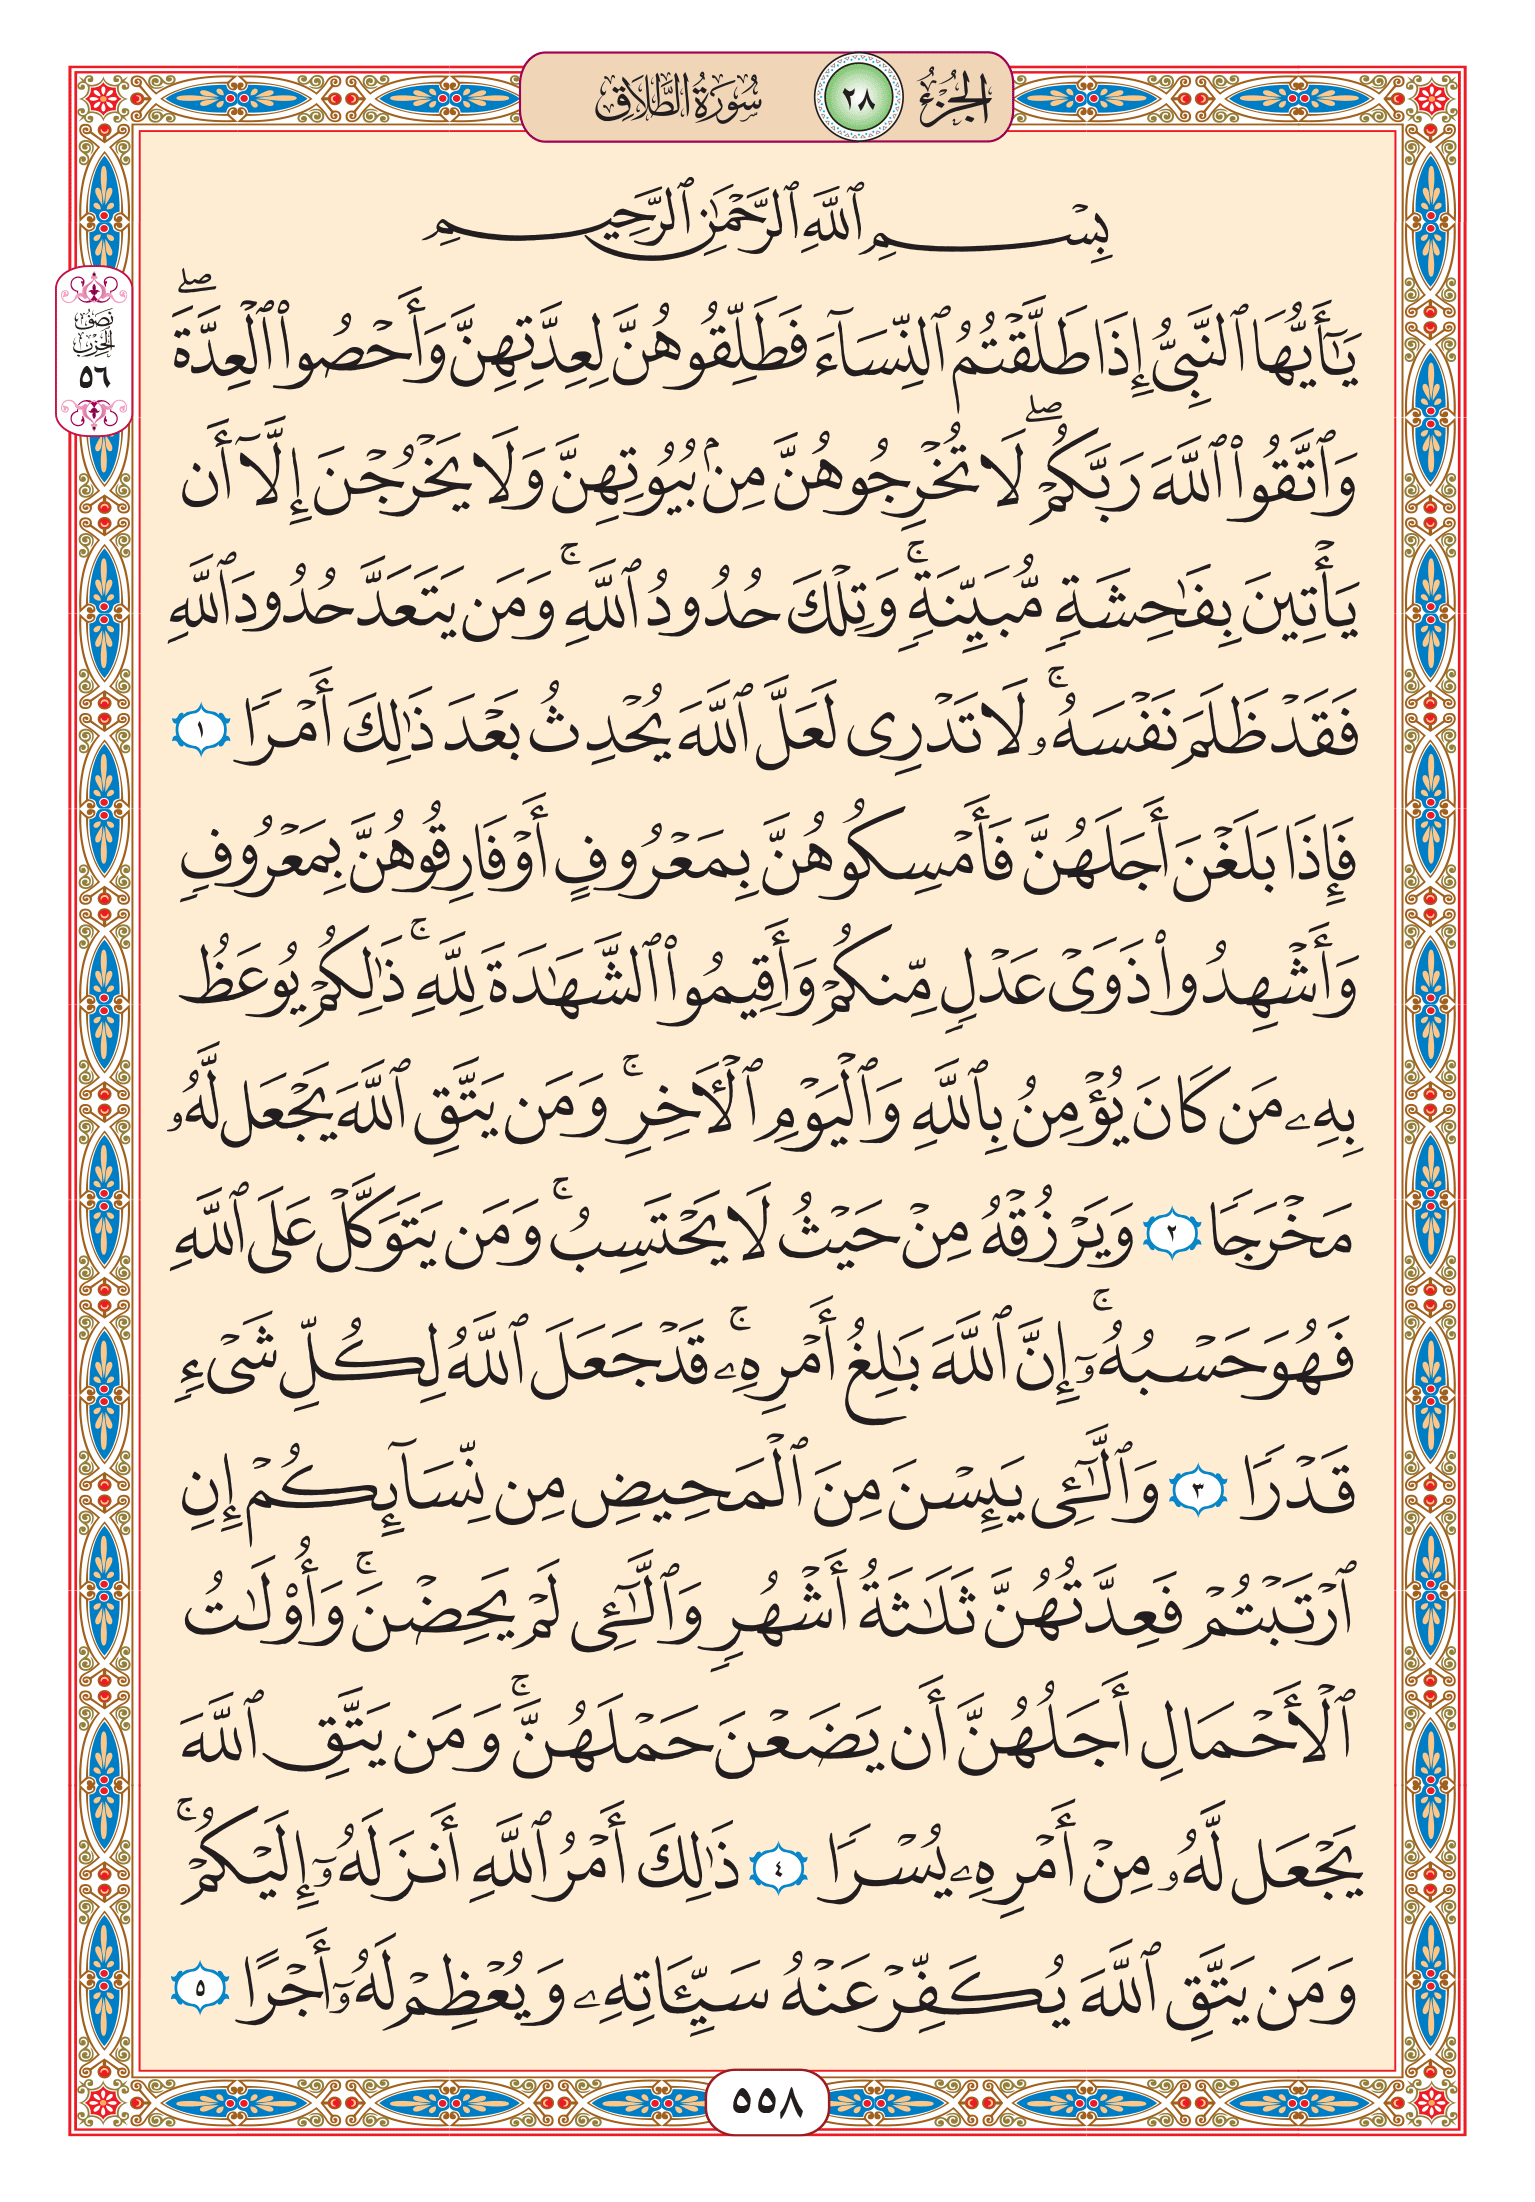 الجزء ٢٨ سورة الطلاق
بِسْمِ ٱللَّهِ ٱلرَّحْمَٰنِ ٱلرَّحِيمِ
نصف
الحزب
٥٦
يَٰٓأَيُّهَا ٱلنَّبِيُّ إِذَا طَلَّقْتُمُ ٱلنِّسَآءَ فَطَلِّقُوهُنَّ لِعِدَّتِهِنَّ وَأَحْصُوا۟ ٱلْعِدَّةَ ۖ
وَٱتَّقُوا۟ ٱللَّهَ رَبَّكُمْ ۖ لَا تُخْرِجُوهُنَّ مِنۢ بُيُوتِهِنَّ وَلَا يَخْرُجْنَ إِلَّآ أَن
يَأْتِينَ بِفَٰحِشَةٍ مُّبَيِّنَةٍ ۚ وَتِلْكَ حُدُودُ ٱللَّهِ ۚ وَمَن يَتَعَدَّ حُدُودَ ٱللَّهِ
فَقَدْ ظَلَمَ نَفْسَهُۥ ۚ لَا تَدْرِى لَعَلَّ ٱللَّهَ يُحْدِثُ بَعْدَ ذَٰلِكَ أَمْرًا ١
فَإِذَا بَلَغْنَ أَجَلَهُنَّ فَأَمْسِكُوهُنَّ بِمَعْرُوفٍ أَوْ فَارِقُوهُنَّ بِمَعْرُوفٍ
وَأَشْهِدُوا۟ ذَوَىْ عَدْلٍ مِّنكُمْ وَأَقِيمُوا۟ ٱلشَّهَٰدَةَ لِلَّهِ ۚ ذَٰلِكُمْ يُوعَظُ
بِهِۦ مَن كَانَ يُؤْمِنُ بِٱللَّهِ وَٱلْيَوْمِ ٱلْـَٔاخِرِ ۚ وَمَن يَتَّقِ ٱللَّهَ يَجْعَل لَّهُۥ
مَخْرَجًا ٢ وَيَرْزُقْهُ مِنْ حَيْثُ لَا يَحْتَسِبُ ۚ وَمَن يَتَوَكَّلْ عَلَى ٱللَّهِ
فَهُوَ حَسْبُهُۥٓ ۚ إِنَّ ٱللَّهَ بَٰلِغُ أَمْرِهِۦ ۚ قَدْ جَعَلَ ٱللَّهُ لِكُلِّ شَىْءٍ
قَدْرًا ٣ وَٱلَّٰٓـِٔى يَئِسْنَ مِنَ ٱلْمَحِيضِ مِن نِّسَآئِكُمْ إِنِ
ٱرْتَبْتُمْ فَعِدَّتُهُنَّ ثَلَٰثَةُ أَشْهُرٍ وَٱلَّٰٓـِٔى لَمْ يَحِضْنَ ۚ وَأُو۟لَٰتُ
ٱلْأَحْمَالِ أَجَلُهُنَّ أَن يَضَعْنَ حَمْلَهُنَّ ۚ وَمَن يَتَّقِ ٱللَّهَ
يَجْعَل لَّهُۥ مِنْ أَمْرِهِۦ يُسْرًا ٤ ذَٰلِكَ أَمْرُ ٱللَّهِ أَنزَلَهُۥٓ إِلَيْكُمْ ۚ
وَمَن يَتَّقِ ٱللَّهَ يُكَفِّرْ عَنْهُ سَيِّـَٔاتِهِۦ وَيُعْظِمْ لَهُۥٓ أَجْرًا ٥
٥٥٨